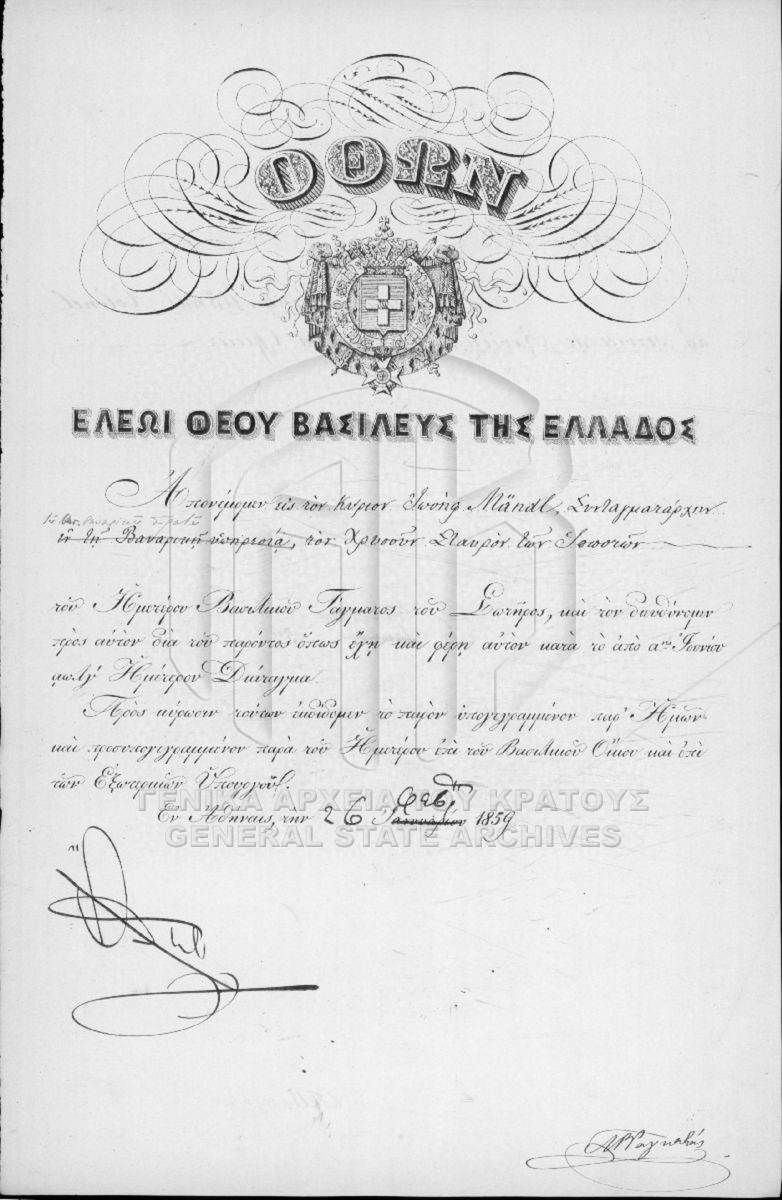 ΟΘΩΝ
ΕΛΕΩΙ ΘΕΟΥ ΒΑΣΙΛΕΥΣ ΤΗΣ ΕΛΛΑΔΟΣ
Ἀπονέμομεν εἰς τὸν Κύριον Ἰωσὴφ Mändl, Συνταγματάρχην
ἐν τῇ Βαυαρικῇ ὑπηρεσίᾳ, τὸν Χρυσοῦν Σταυρὸν τῶν Ἱπποτῶν
τοῦ Ἡμετέρου Βασιλικοῦ Τάγματος τοῦ Σωτῆρος, καὶ τὸν διευθύνομεν
πρὸς αὐτὸν διὰ τοῦ παρόντος ὅπως ἔχῃ καὶ φέρῃ αὐτὸν κατὰ τὸ ἀπὸ αης Ἰουνίου
αωλγʹ Ἡμέτερον Διάταγμα.
Πρὸς κύρωσιν τούτων ἐκδίδομεν τὸ παρὸν ὑπογεγραμμένον παρ' Ἡμῶν
καὶ προσυπογεγραμμένον παρὰ τοῦ Ἡμετέρου ἐπὶ τοῦ Βασιλικοῦ Οἴκου καὶ ἐπὶ
τῶν Ἐξωτερικῶν Ὑπουργοῦ.
Φεβ.
Ἐν Ἀθήναις, τὴν 26 Ἰανουαρίου 1859
ΓΕΝΙΚΑ ΑΡΧΕΙΑ ΤΟΥ ΚΡΑΤΟΥΣ
GENERAL STATE ARCHIVES
ΑΡ Ραγκαβής